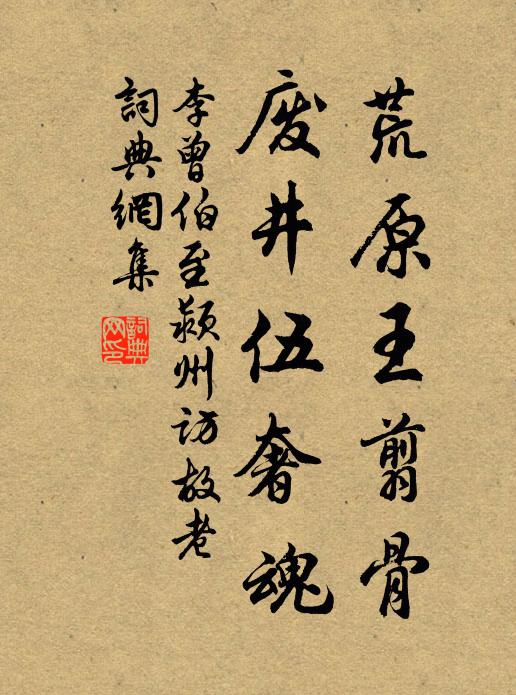 荒原王翦骨
废井伍奢魂
李曾伯至颍州訪故老
詞典網集
詞典網印